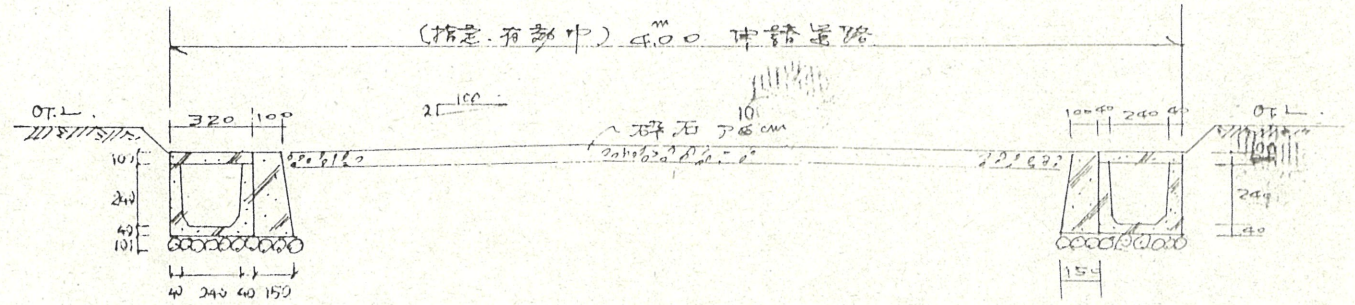 (指定.有効巾) 4.00m 申請道路
O.T.L.
320 100
2 100
10
砕石 ア6cm
100 40 240 40
O.T.L.
10
240
40
10
240
40
40 240 40 150
150